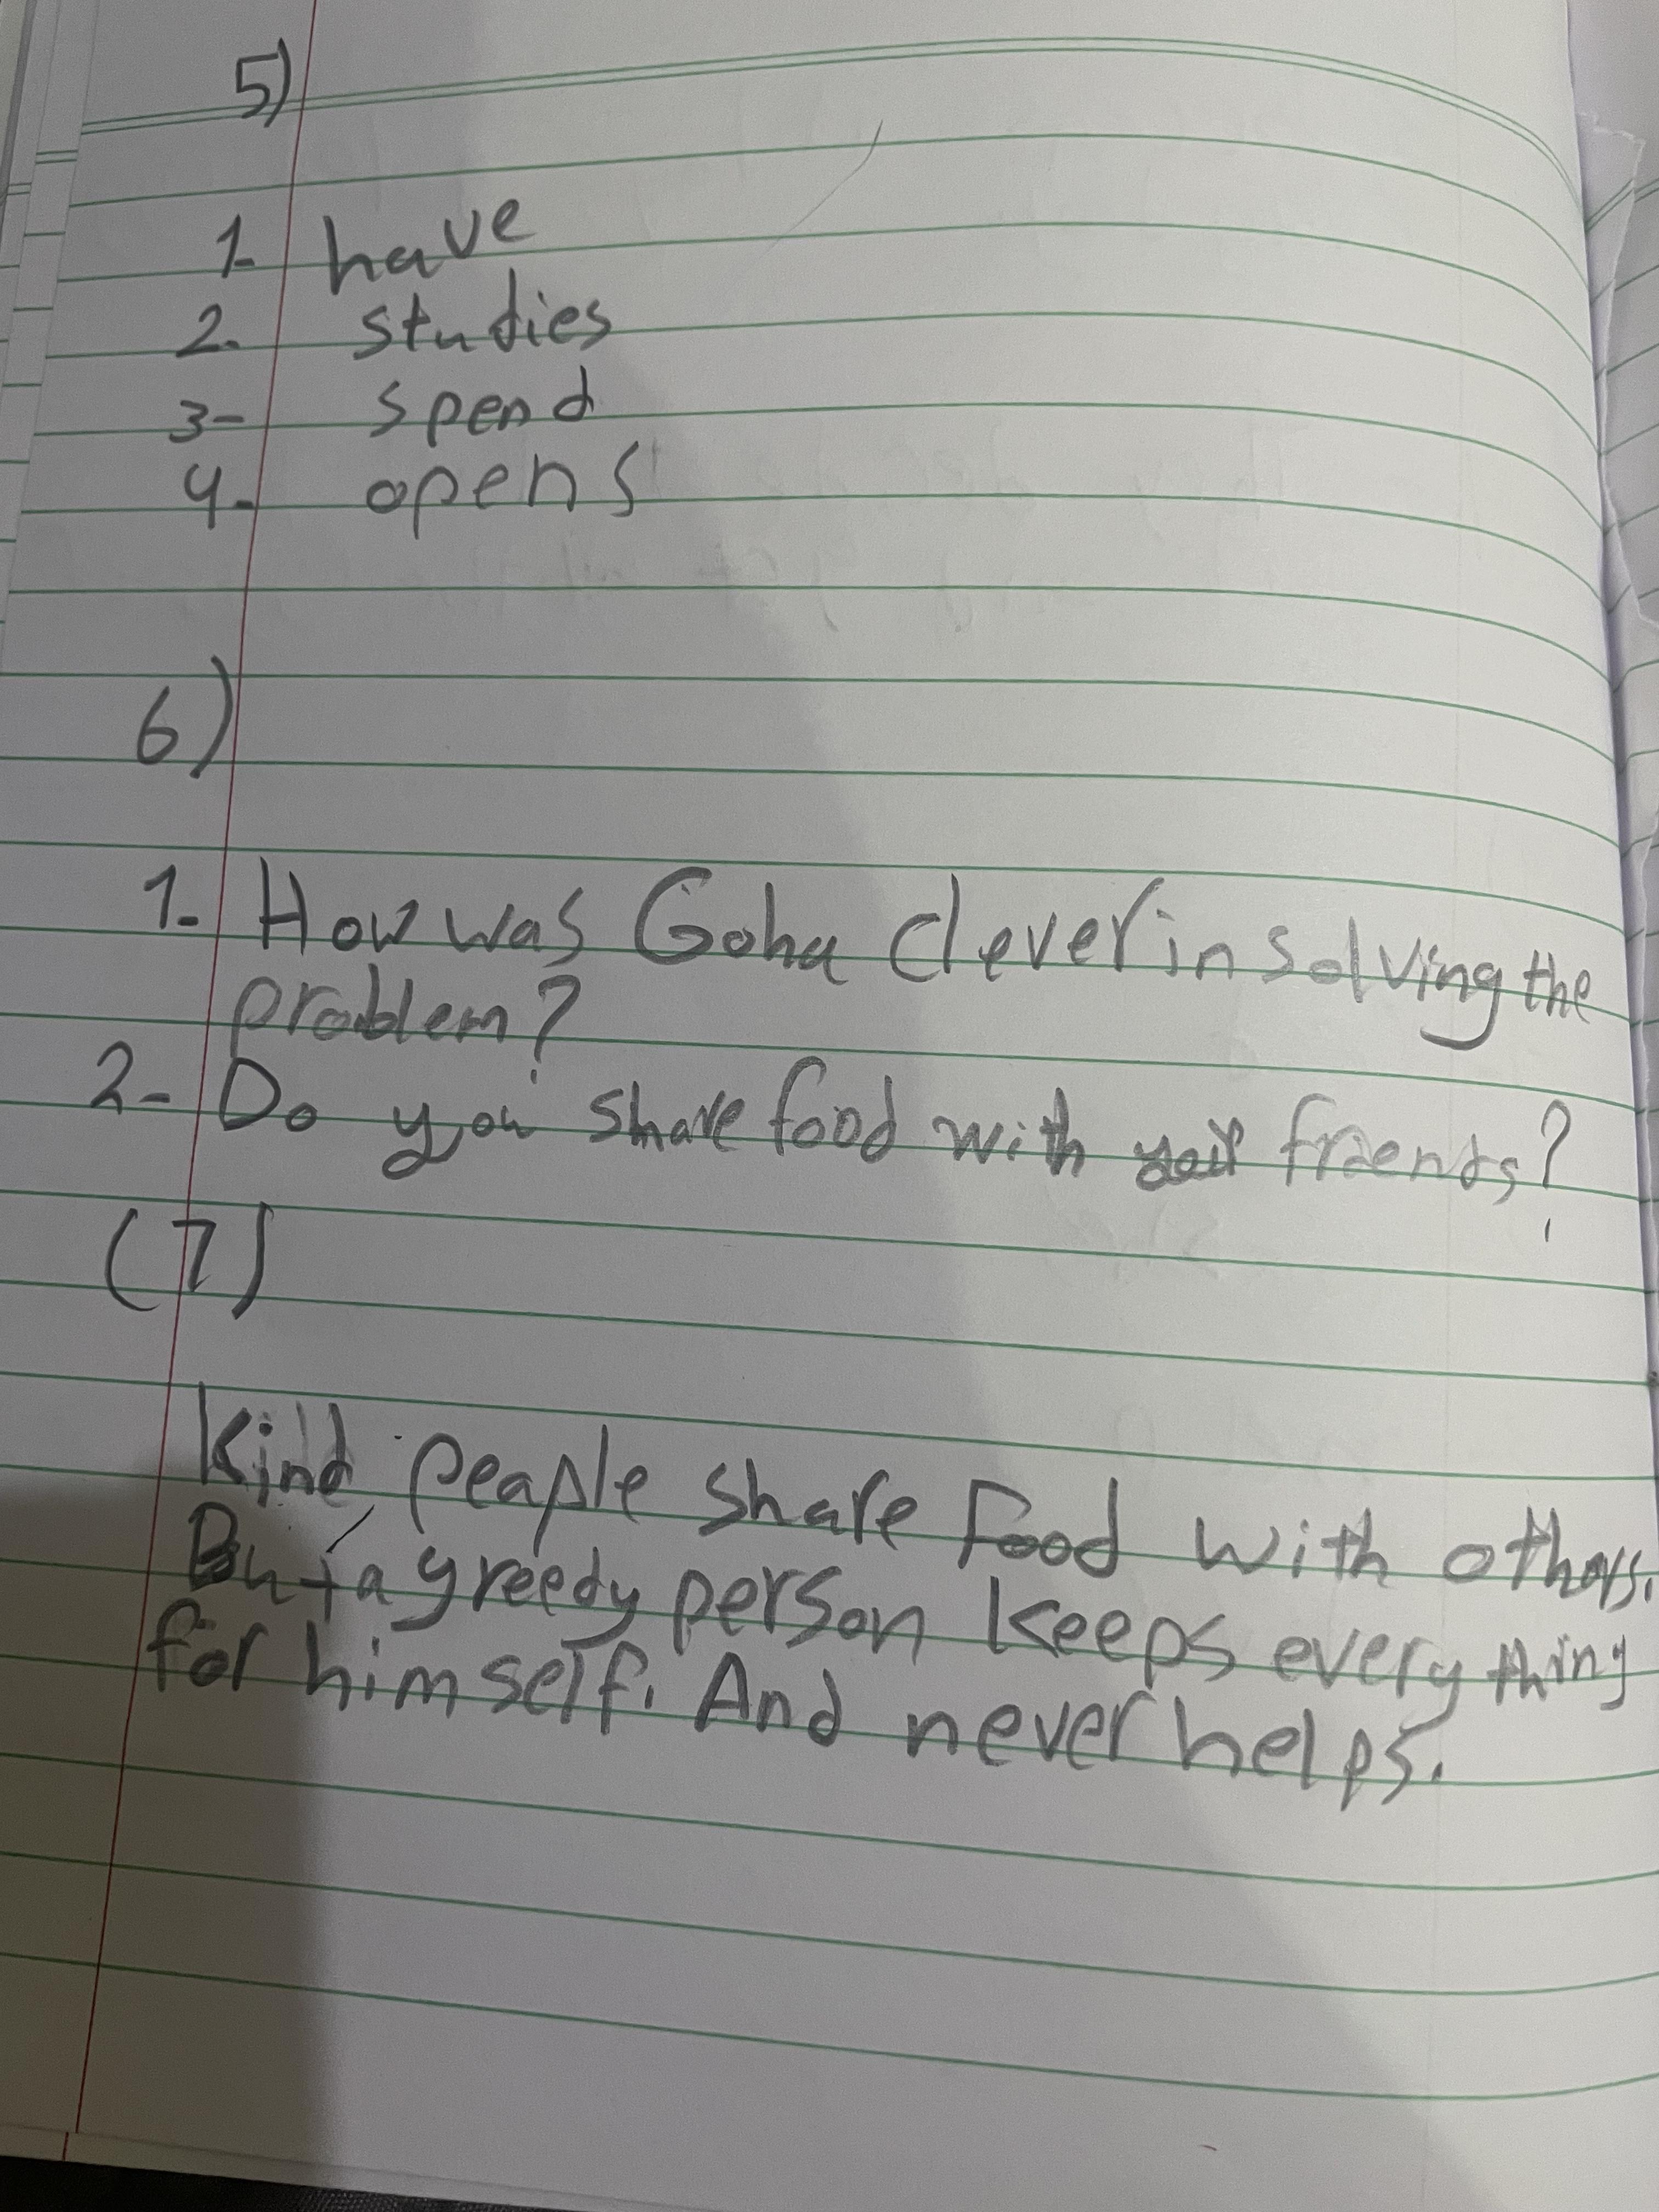 5)
1- have
2. studies
3- spend
4- opens
6)
1- How was Goha clever in solving the
problem?
2- Do you share food with your friends?
(7)
Kind peaple share Food with others.
But a greedy person keeps every thing
for himself. And never helps.